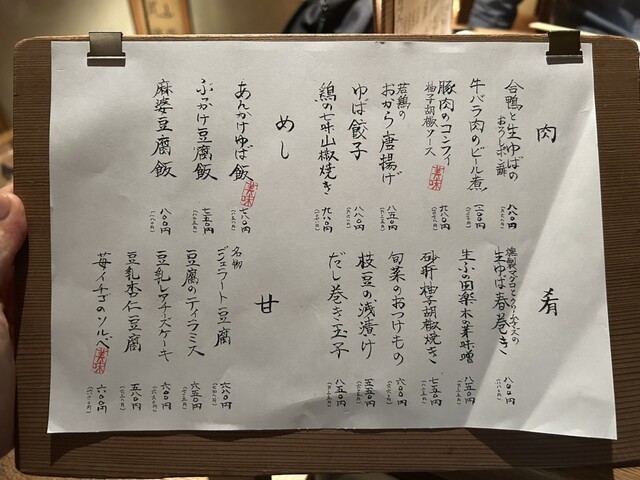 肉
合鴨と生ゆばの
おろしポン酢
八八〇円
牛バラ肉のビール煮
豚肉のコンフィ
柚子胡椒ソース
美味
九八〇円
若鶏の
おから唐揚げ
八五〇円
ゆば餃子
八八〇円
鶏の七味山椒焼き
九八〇円
めし
あんかけゆば飯
美味
七八〇円
ぶっかけ豆腐飯
七五〇円
麻婆豆腐飯
八〇〇円
肴
燻製マグロとクリームチーズの
生ゆば春巻き
八〇〇円
生ふの田楽 木の葉味噌
八五〇円
砂肝柚子胡椒焼き
七五〇円
旬菜のおつけもの
六〇〇円
枝豆の浅漬け
五五〇円
だし巻き玉子
八五〇円
甘
名物
ジェラート豆腐
六八〇円
豆腐のティラミス
六五〇円
豆乳レアチーズケーキ
六五〇円
豆乳杏仁豆腐
五八〇円
苺イチゴのソルベ
美味
六〇〇円